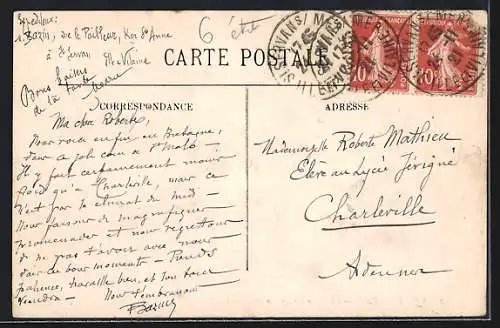 Expéditeur:
Bazin, rue de Ker Ste Anne
à St Servan Ille & Vilaine
6 été
CARTE POSTALE
Bons baisers
de la
CORRESPONDANCE
ADRESSE
Ma chère Roberte,
Nous voici enfin en Bretagne,
dans ce joli coin de St Malo.
Il y fait certainement moins
froid qu'à Charleville, mais ce
n'est pas le climat du midi -
Nous faisons de magnifiques
promenades et nous regrettons
de ne pas t'avoir avec nous
dans ce bon moment - Prends
patience, travaille bien, et ton tour
viendra - Nous t'embrassons
Bazin
Mademoiselle Roberte Mathieu
Elève au Lycée Sévigné
Charleville
Ardennes
10
10